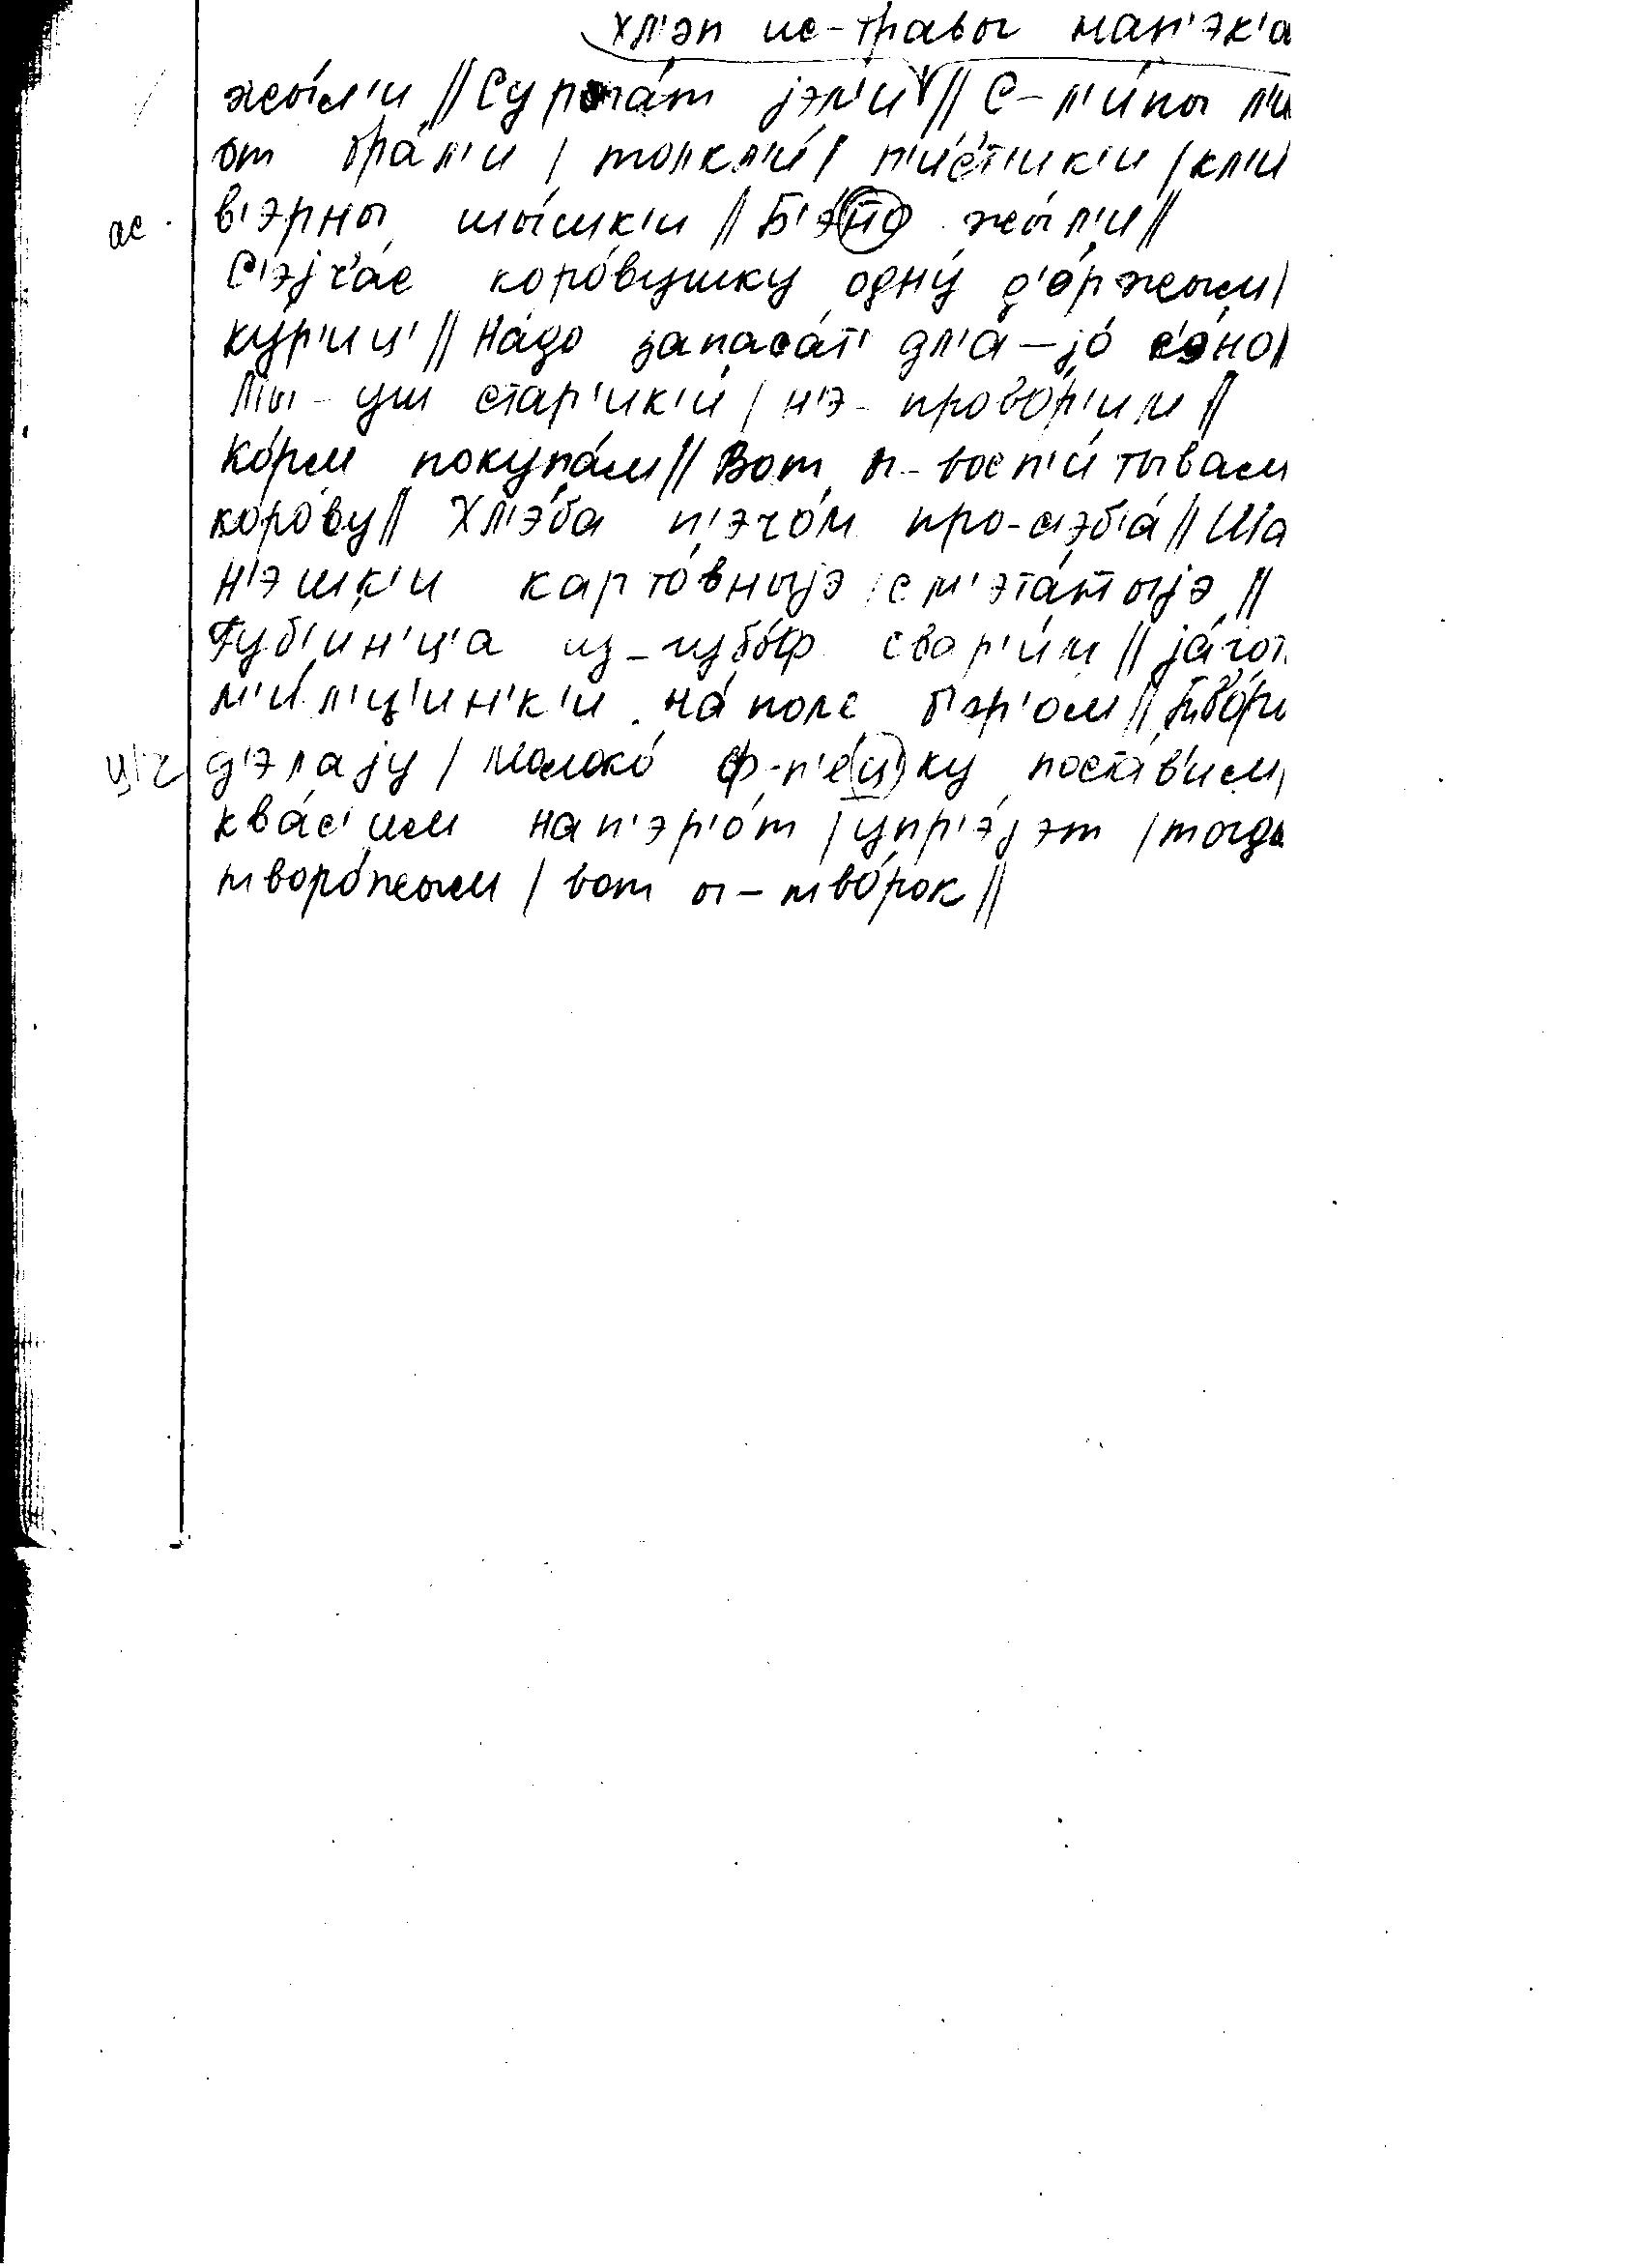 хл'эп ис-травы нап'эк'а
жы́л'и || Сурога́т јэл'и || С-л'и́пы л'и
от бра́л'и / толкл'и́ / п'и́ст'ик'и / кл'и́
ас. в'эрны шы́шк'и || Б'э́тно жы́л'и ||
С'эјч'а́с коро́вушку одну́ д'о́ржым /
ку́р'иц' || На́до запаса́т' дл'а-јо́ с'э́но /
Мы-уш стар'ик'и́ / н'э-прово́р'им ||
Ко́рм покупа́м || Вот ы-восп'и́тывам
коро́ву || Хл'э́ба п'эчо́м про-с'эб'а́ || Ша
н'эшк'и карто́вныјэ см'эта́тныјэ ||
Губ'и́н'ица из-губо́ф свар'и́м || ја́гот
на́ полe б'эр'о́м || Тво́ры
ц'/ч д'э́лају / Молоко́ ф-п'е́цку поста́в'им,
ква́с'им нап'эр'о́т / упр'э́јэт / тогда
творо́жым / вот ы-тво́рок ||